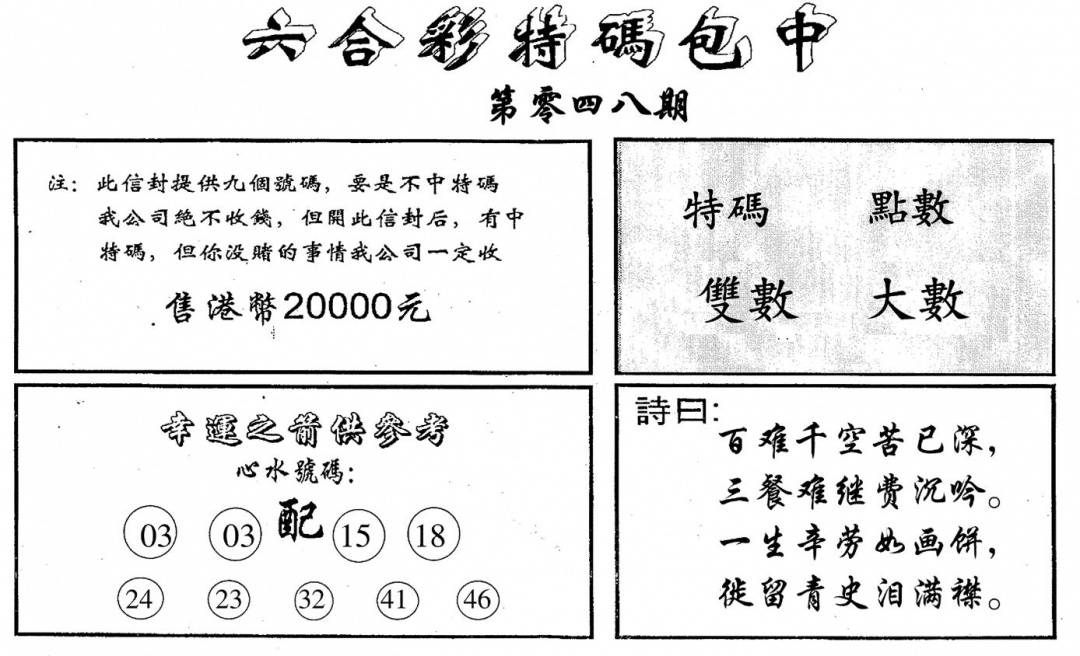 六合彩特碼包中
第零四八期
注：此信封提供九個號碼，要是不中特碼
我公司絶不收錢，但開此信封后，有中
特碼，但你没賭的事情我公司一定收
售港幣20000元
特碼 點數
雙數 大數
幸運之箭供參考
心水號碼：
03 03 配 15 18
24 23 32 41 46
詩曰：
百难千空苦已深，
三餐难继费沉吟。
一生辛劳如画饼，
徙留青史泪满襟。